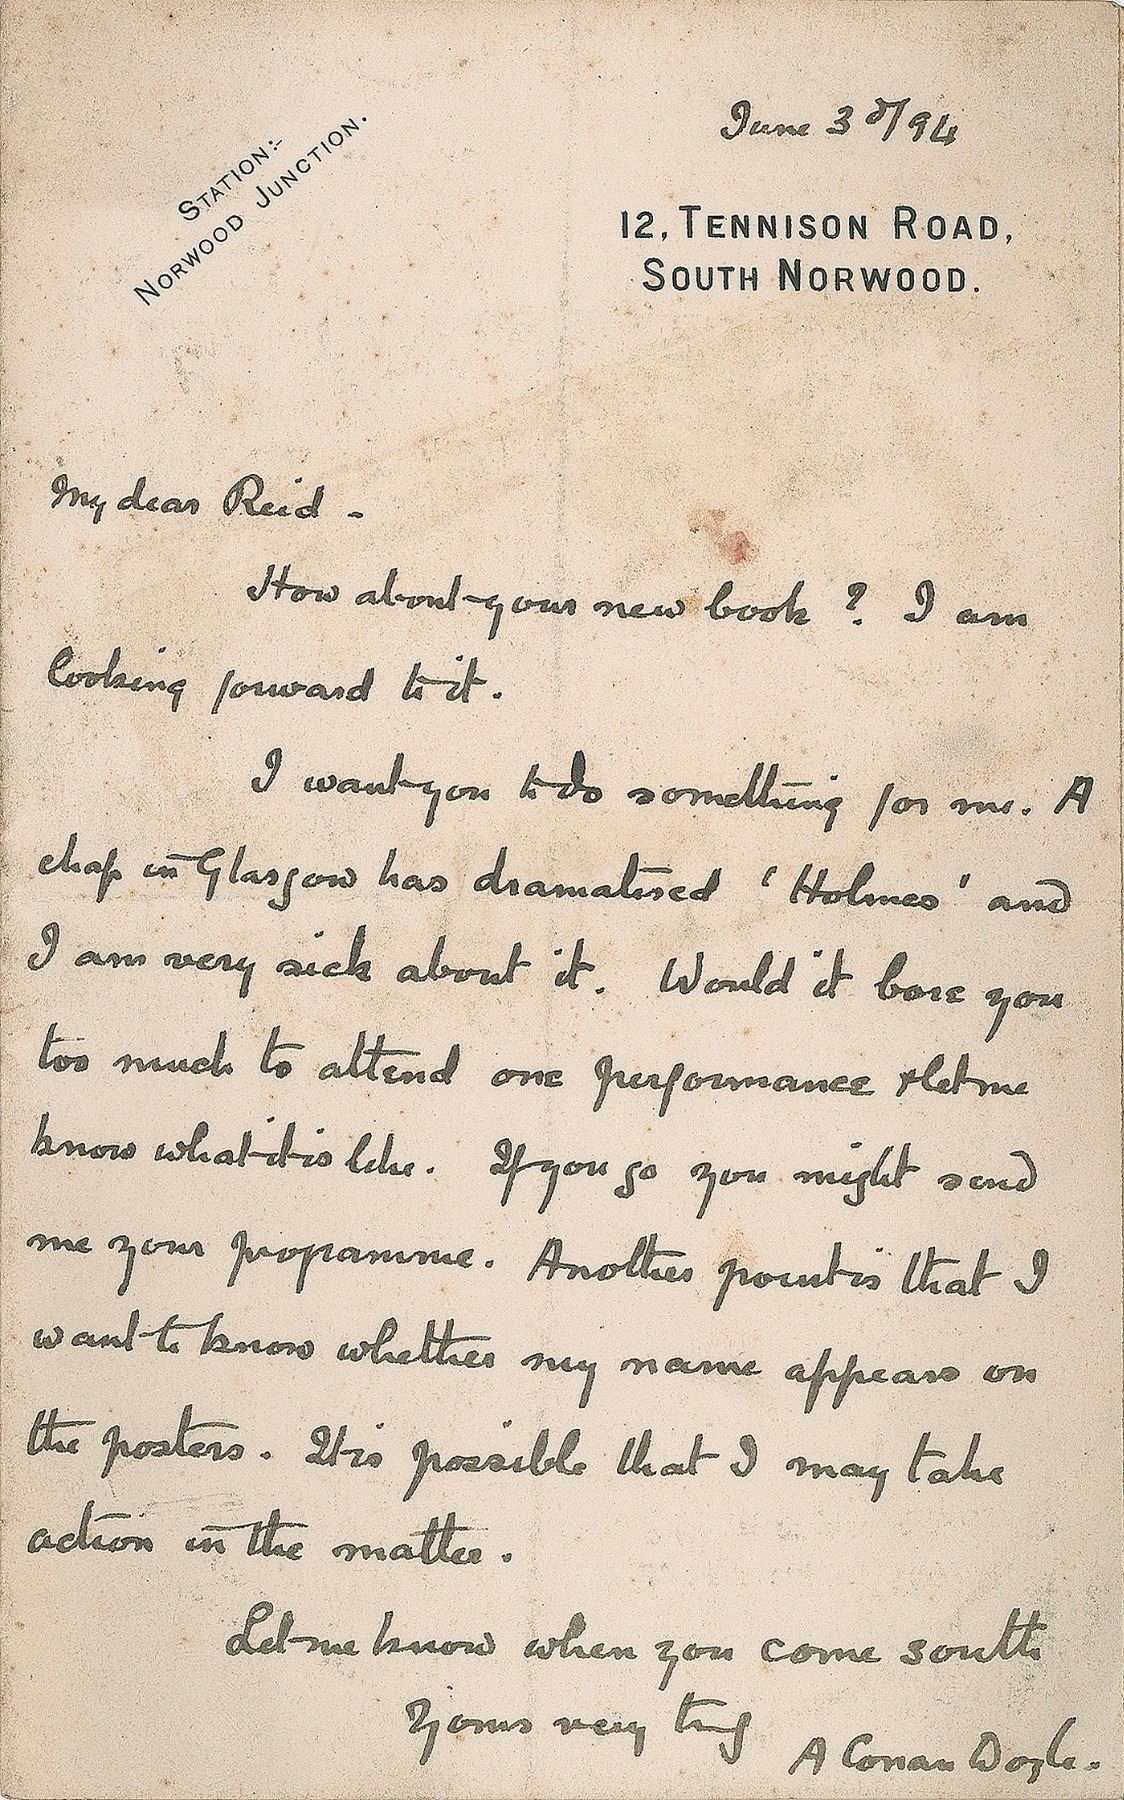 June 3d/94
STATION:-
NORWOOD JUNCTION.
12, TENNISON ROAD,
SOUTH NORWOOD.
My dear Reid -
How about your new book? I am
looking forward to it.
I want you to do something for me. A
chap in Glasgow has dramatised 'Holmes' and
I am very sick about it. Would it bore you
too much to attend one performance & let me
know what it is like. If you go you might send
me your programme. Another point is that I
want to know whether my name appears on
the posters. It is possible that I may take
action in the matter.
Let me know when you come south
Yours very truly
A Conan Doyle.